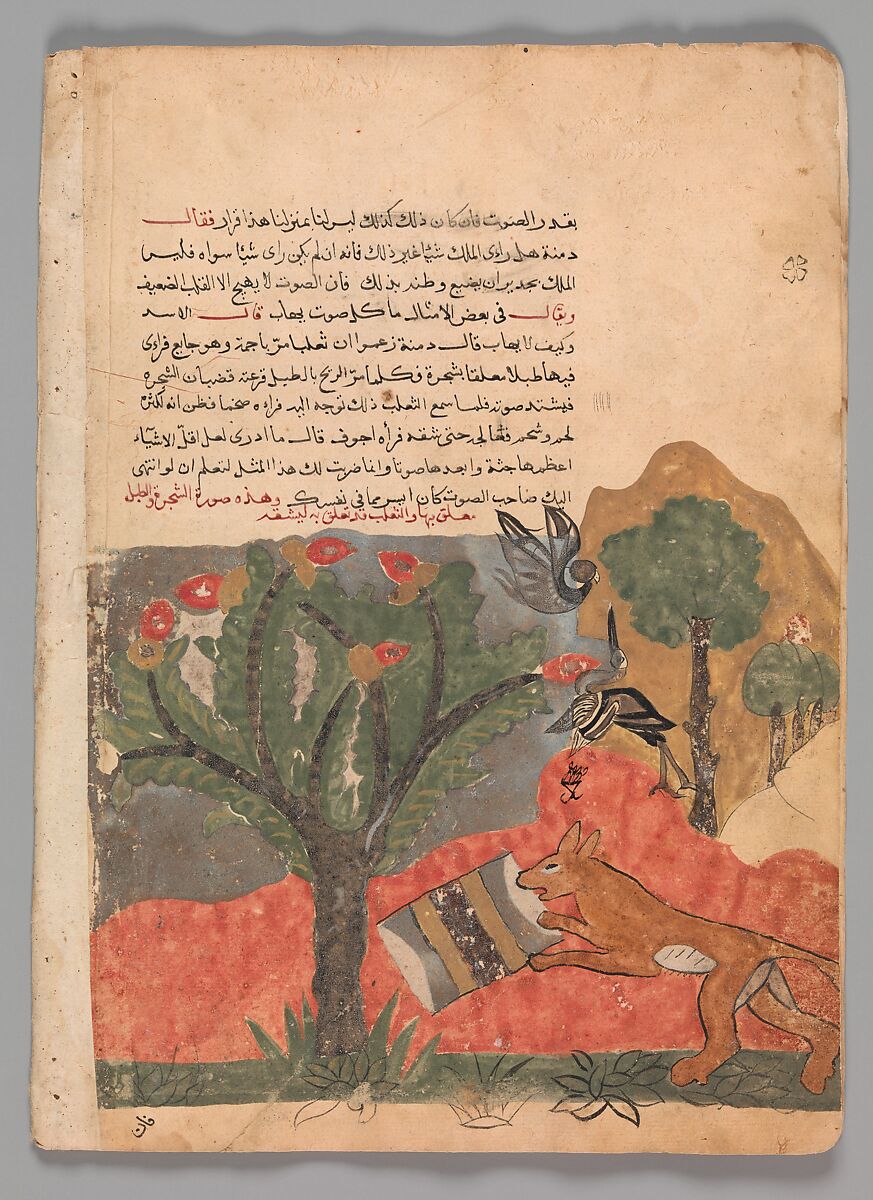 بقدر الصوت فان كان ذلك كذلك ليس لنا بمنزلنا هذا قرار فقال
دمنة هل راى الملك شيا غير ذلك فانه ان لم يكن راى شيا سواه فليس
الملك بجدير ان يضيع وطنه بذلك فان الصوت لا يهيج الا القلب الضعيف
ويقال فى بعض الامثال ما كل صوت يهاب قال الاسد
وكيف لا يهاب قال دمنة زعموا ان ثعلبا مر باجمة وهو جايع فراى
فيها طبلا معلقا بشجرة فكلما مر الريح بالطبل قرعته قضبان الشجرة
فيشتد صوته فلما سمع الثعلب ذلك توجه اليه فراءه ضخما فظن انه لكثرة
لحم وشحم فعالجه حتى شقه فرأه اجوف قال ما ادرى لعل اقل الاشيآء
اعظمها جثة وابعدها صوتا وانما ضربت لك هذا المثل لتعلم ان لو انتهى
اليك صاحب الصوت كان ايسر مما فى نفسك وهذه صورة الشجرة والطبل
معلق بها والثعلب قد تعلق به ليشقه
فان